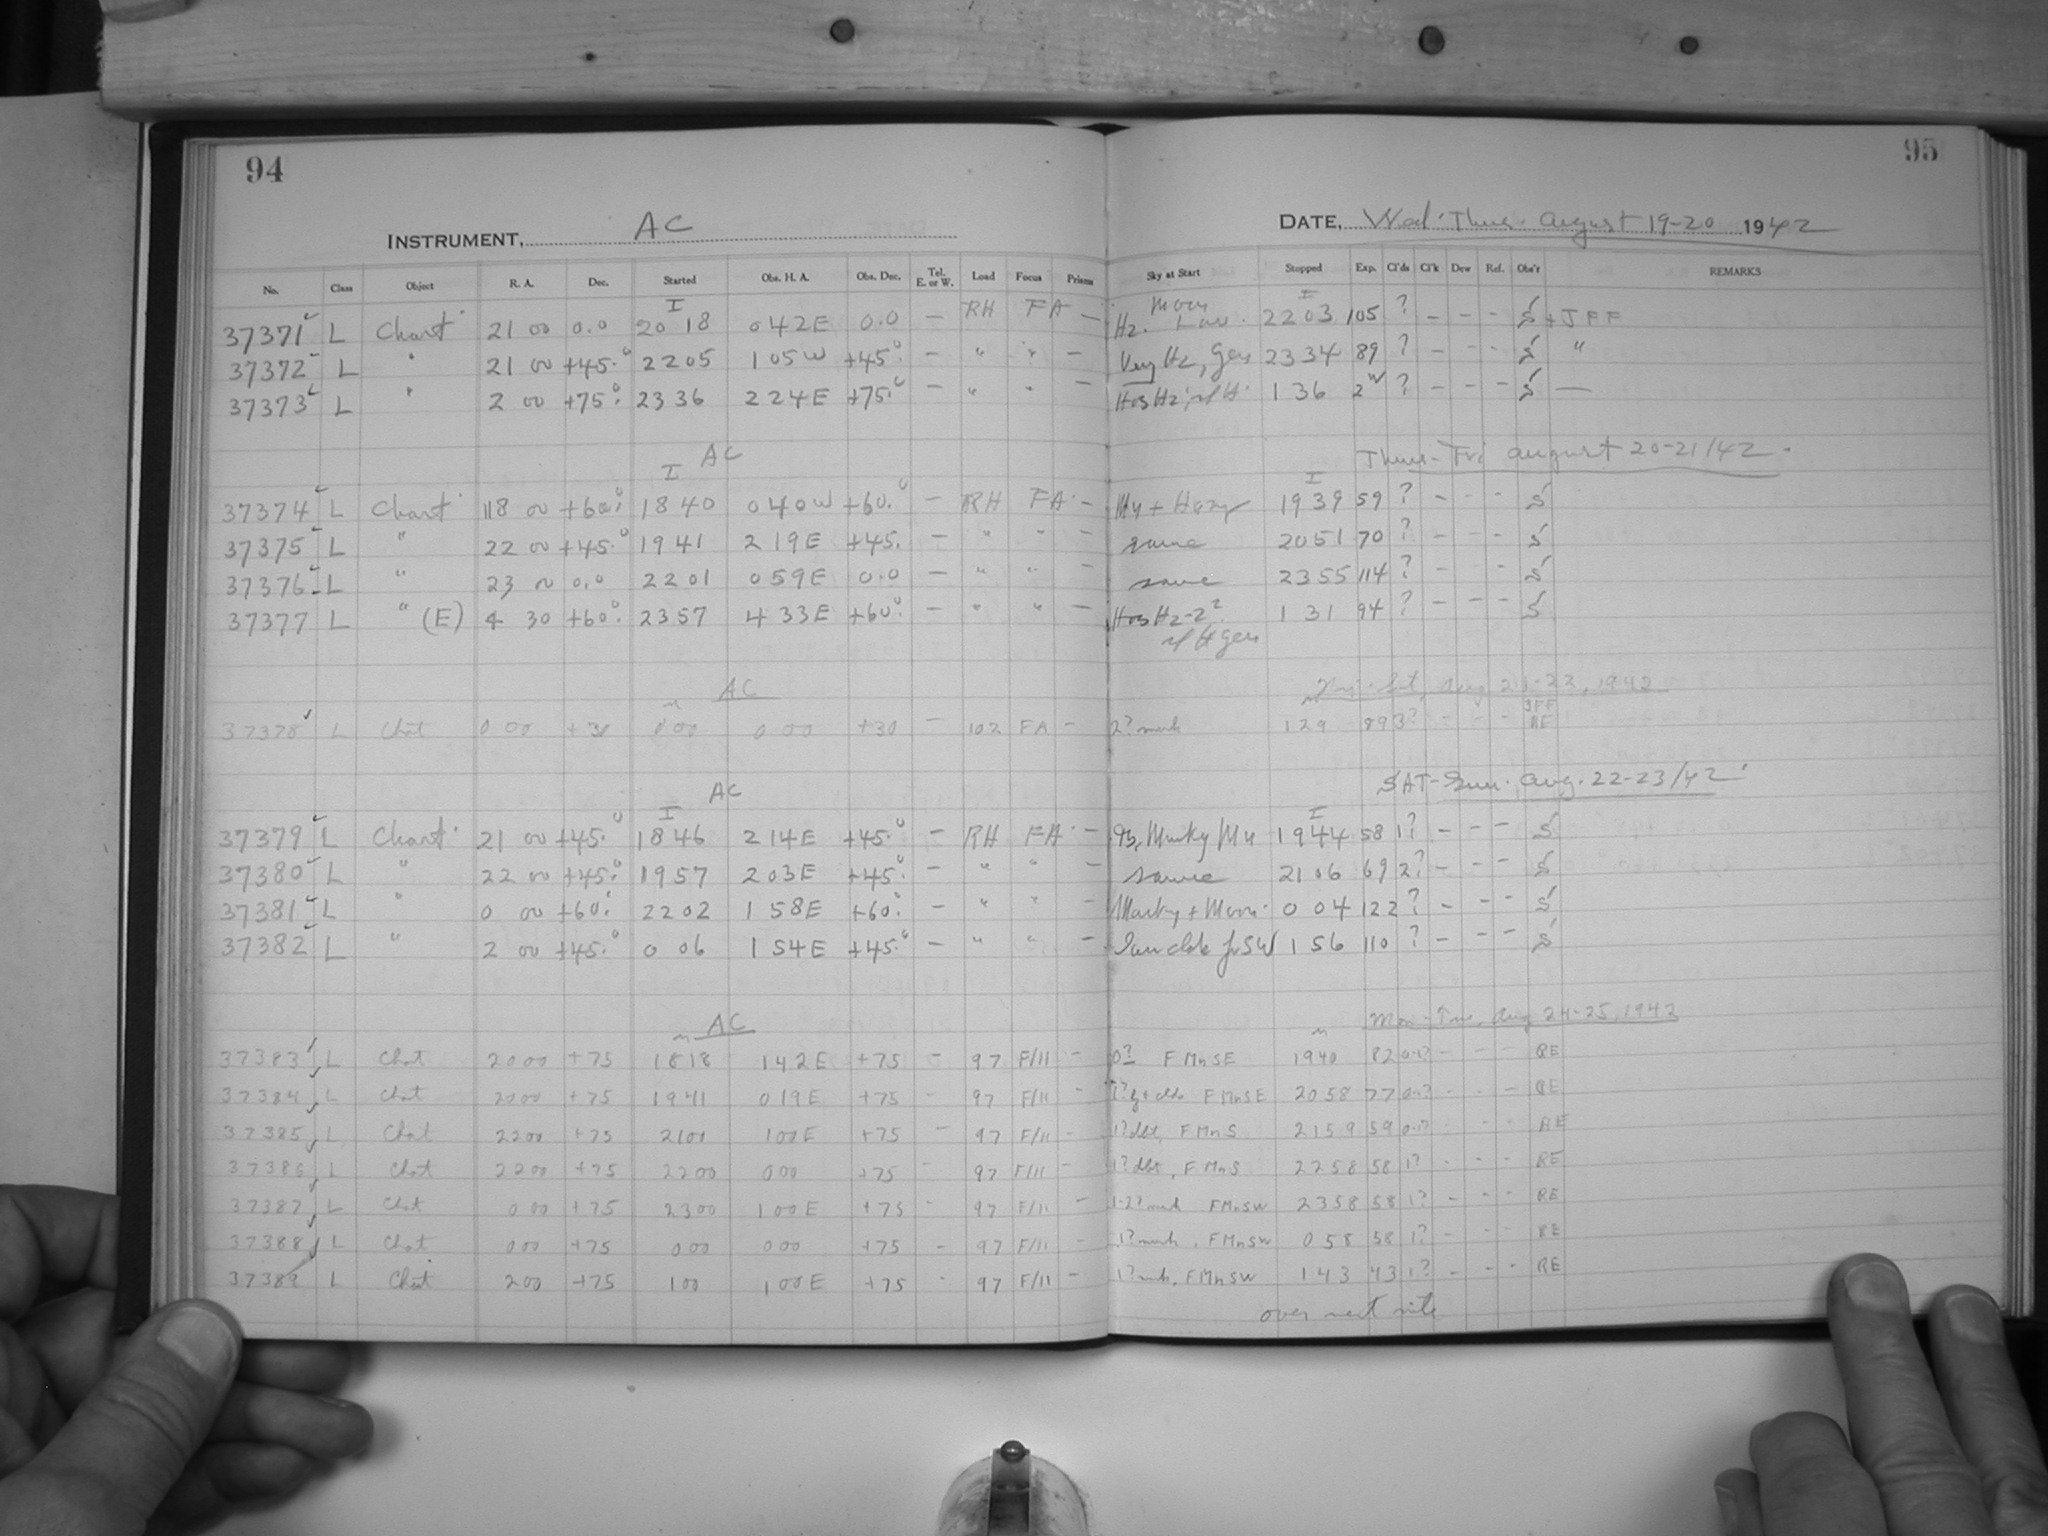 94
95
INSTRUMENT, AC
DATE, Wed. Thur. August 19-20 1942
No. Class Object R. A. Dec. Started Obs. H. A. Obs. Dec. Tel. E. or W. Load Focus Prisms Sky at Start Stopped Exp. Cl'ds Cl'k Dew Ref. Obs'r REMARKS
37371 L Chart 21 00 0.0 I 20 18 0 42E 0.0 — RH FA — Hz. Moon Low. I 2203 105 ? — — — S + JFF
37372 L " 21 00 +45.° 2205 1 05W +45.° — " " — Very Hz, 2334 89 ? — — — S "
37373 L " 2 00 +75.° 2336 2 24E +75.° — " — 1 36 2 ? — — — S —
AC Thurs-Fri August 20-21/42.
37374 L Chart 18 00 +60.° I 1840 0 40W +60.° — RH FA — + Hazy I 1939 59 ? — — — S
37375 L " 22 00 +45.° 1941 2 19E +45. — " " — same 2051 70 ? — — — S
37376 L " 23 00 0.0 2201 0 59E 0.0 — " " — same 2355 114 ? — — — S
37377 L " (E) 4 30 +60.° 2357 4 33E +60.° — " " — 1 31 94 ? — — — S
AC Fri-Sat, Aug 21-22, 1942
37378 L Chat 0 00 +30 0 00 0 00 +30 — 102 FA — 2? murk 129 89 3? — — — JFF RE
AC SAT-Sun. Aug. 22-23/42.
37379 L Chart 21 00 +45.° I 1846 2 14E +45.° — RH FA — Murky I 1944 58 1? — — — S
37380 L " 22 00 +45.° 1957 2 03E +45.° — " " — same 2106 69 2? — — — S
37381 L " 0 00 +60.° 2202 1 58E +60.° — " " — Murky + Moon. 0 04 122 ? — — — S
37382 L " 2 00 +45.° 0 06 1 54E +45.° — " " — SW 1 56 110 ? — — — S
AC Mon-Tue, Aug 24-25, 1942
37383 L Chat 2000 +75 1818 142E +75 — 97 F/11 — 0? FMnSE 1940 82 0-1? — — — RE
37384 L Chat 2000 +75 1941 019E +75 - 97 F/11 - FMnSE 2058 77 0-1? - - — RE
37385 L Chat 2200 +75 2100 100E +75 — 97 F/11 - 1? dbt, FMnS 2159 59 0-1? - - - RE
37386 L Chat 2200 +75 2200 000 +75 - 97 F/11 - 1? dbt, FMnS 2258 58 1? - - - RE
37387 L Chat 0 00 +75 2300 100E +75 - 97 F/11 - 1-2? murk FMnSW 2358 58 1? - - - RE
37388 L Chat 0 00 +75 0 00 0 00 +75 - 97 F/11 - 1? murk, FMnSW 058 58 1? - - - RE
37389 L Chat 2 00 +75 1 00 100E +75 - 97 F/11 - 1? murk, FMnSW 143 43 1? - - - RE
over next nite